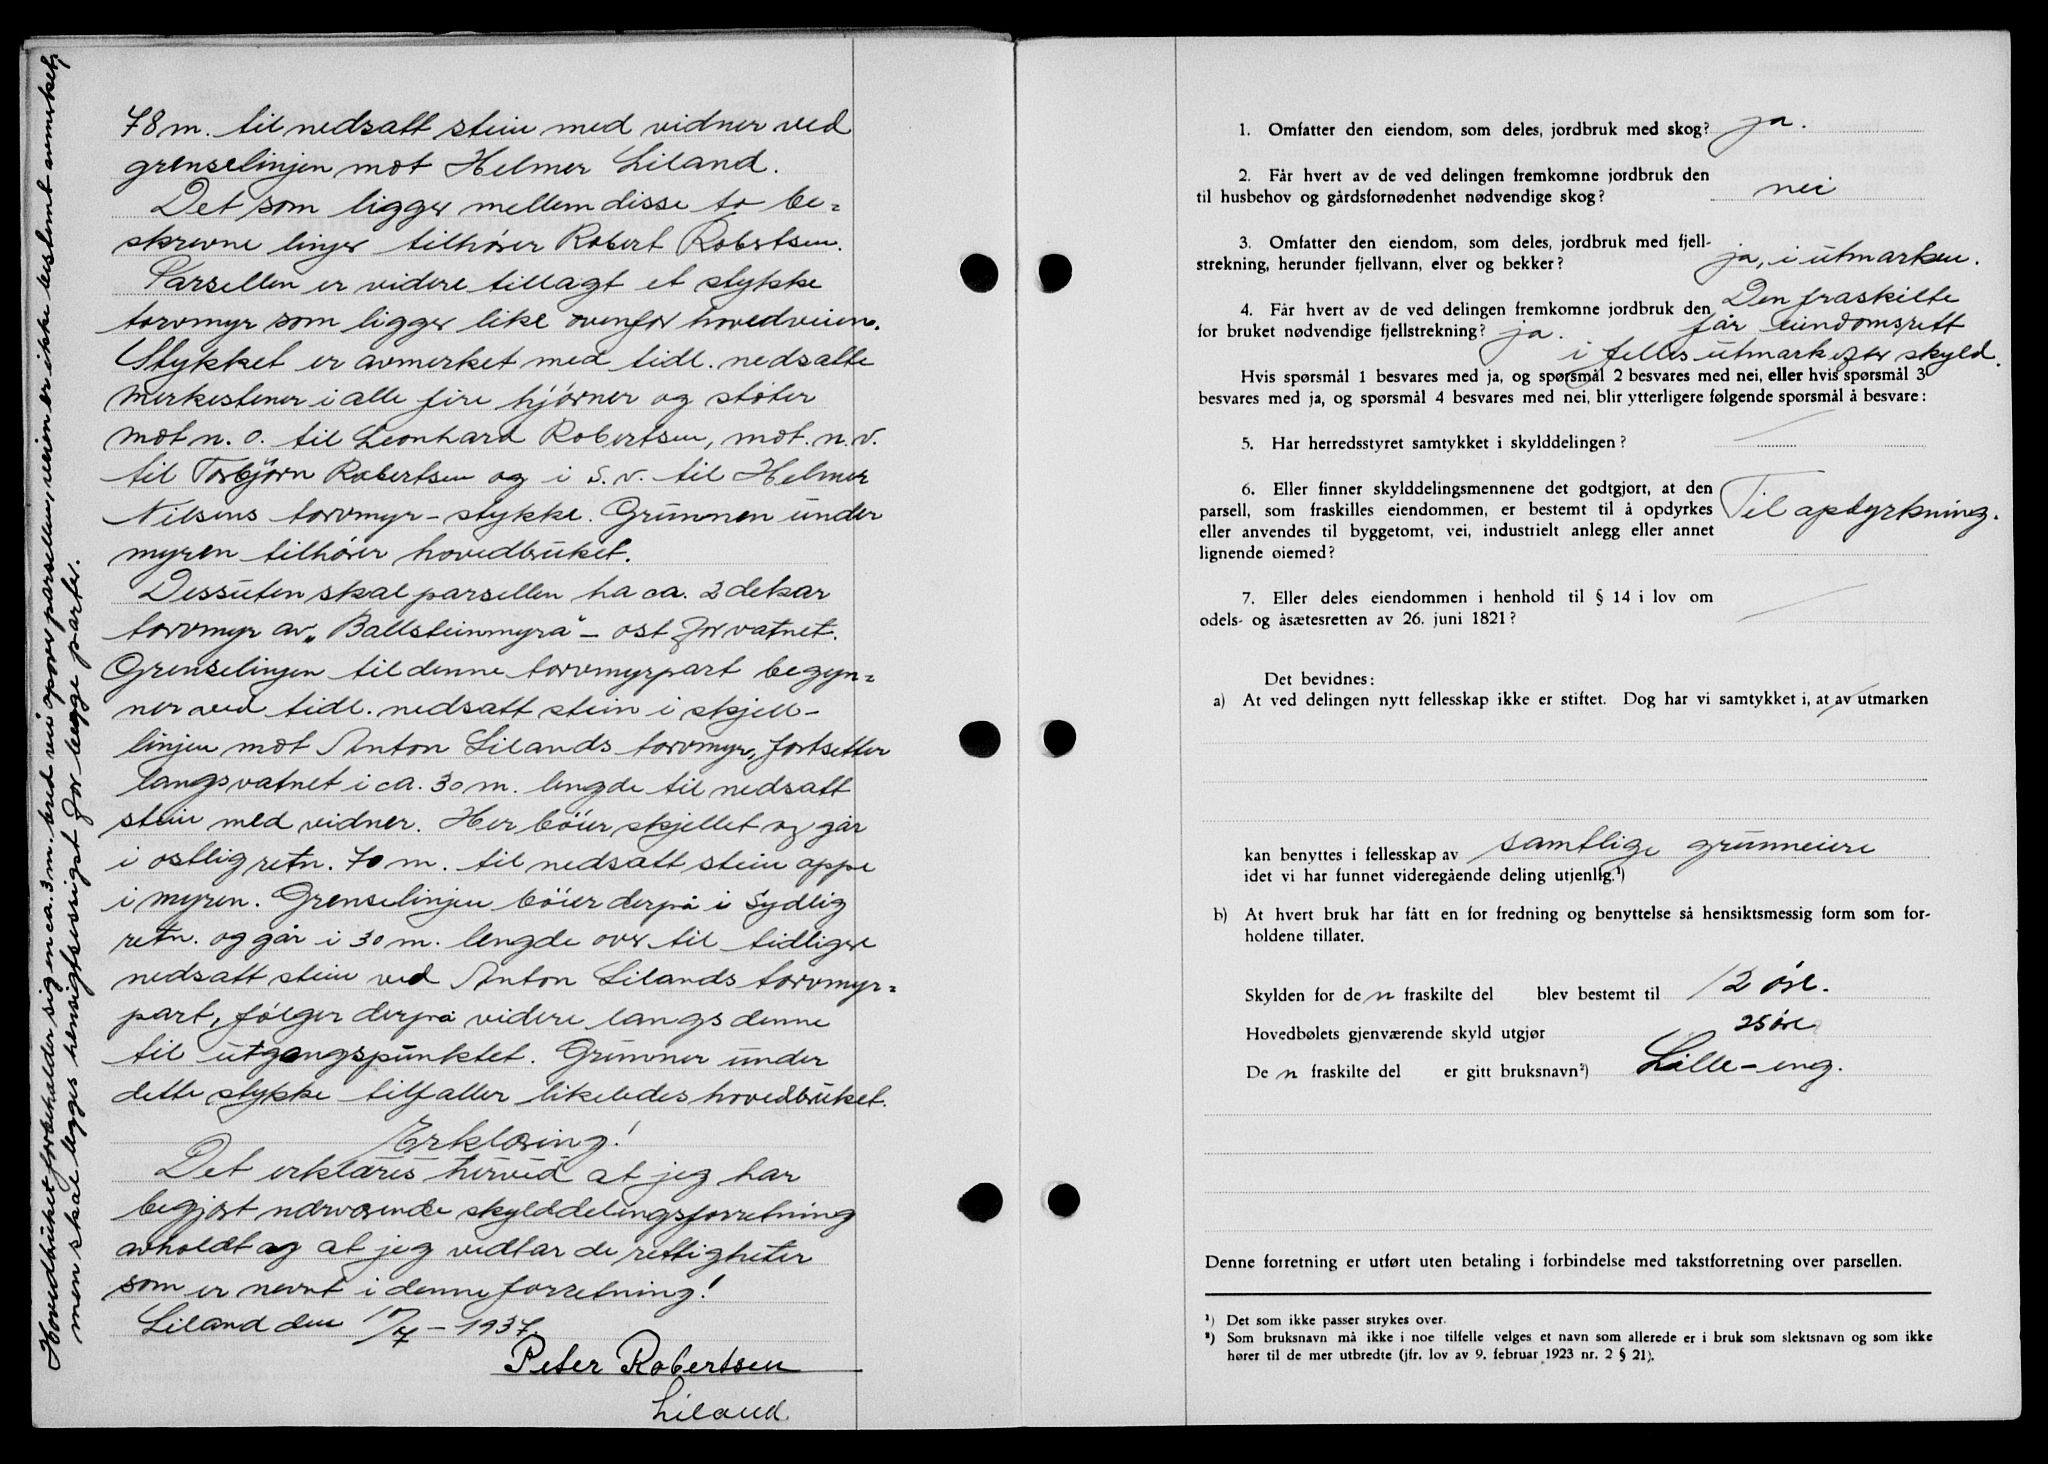 78 m. til nedsatt stein med vidner ved
grenselinjen mot Helmer Liland.
Det som ligger mellem disse to be=
skrevne linjer tilhører Robert Robertsen.
Parsellen er videre tillagt et stykke
torvmyr som ligger like ovenfor hovedveien.
Stykket er avmerket med tidl. nedsatte
merkestener i alle fire hjörner og støter
mot n. o. til Leonhard Robertsen, mot n. v.
til Torbjörn Robertsen og i S. v. til Helmer
Nilsens torvmyr-stykke. Grunnen under
myren tilhører hovedbruket.
Dessuten skal parsellen ha ca. 2 dekar
torvmyr av „Ballsteinmyra" - ost for vatnet.
Grenselinjen til denne torvmyrpart begyn=
ner ved tidl. nedsatt stein i skjell-
linjen mot Anton Lilands torvmyr, fortsetter
langs vatnet i ca. 30 m. lengde til nedsatt
stein med vidner. Her böier skjellet og går
i ostlig retn. 70 m. til nedsatt stein oppe
i myren. Grenselinjen böier derpå i Sydlig
retn. og går i 30 m. lengde over til tidligere
nedsatt stein ved Anton Lilands torvmyr=
part, fölger derpå videre langs denne
til utgangspunktet. Grunner under
dette stykke tilfaller likeledes hovedbruket.
Erklæring!
Det erklæres herved at jeg har
begjært nærværende skylddelingsforretning
avholdt og at jeg vedtar de rettigheter
som er nevnt i denne forretning!
Liland den 17/7 - 1937.
Peter Robertsen
Liland
Hovedbruket forbeholder sig en ca. 3 m. bred vei opover parsellen, veien er ikke bestemt avmerket,
men skal legges hensigtsessigst for begge parter.
1. Omfatter den eiendom, som deles, jordbruk med skog? ja.
2. Får hvert av de ved delingen fremkomne jordbruk den
til husbehov og gårdsfornødenhet nødvendige skog? nei
3. Omfatter den eiendom, som deles, jordbruk med fjell-
strekning, herunder fjellvann, elver og bekker? ja, i utmarken.
4. Får hvert av de ved delingen fremkomne jordbruk den Den fraskilte
for bruket nødvendige fjellstrekning? ja. får eiendomsrett
i felles utmark efter skyld.
Hvis spørsmål 1 besvares med ja, og spørsmål 2 besvares med nei, eller hvis spørsmål 3
besvares med ja, og spørsmål 4 besvares med nei, blir ytterligere følgende spørsmål å besvare:
5. Har herredsstyret samtykket i skylddelingen?
6. Eller finner skylddelingsmennene det godtgjort, at den
parsell, som fraskilles eiendommen, er bestemt til å opdyrkes Til opdyrkning.
eller anvendes til byggetomt, vei, industrielt anlegg eller annet
lignende øiemed?
7. Eller deles eiendommen i henhold til § 14 i lov om
odels- og åsætesretten av 26. juni 1821?
Det bevidnes:
a) At ved delingen nytt fellesskap ikke er stiftet. Dog har vi samtykket i, at av utmarken
kan benyttes i fellesskap av samtlige grunneiere
idet vi har funnet videregående deling utjenlig.¹)
b) At hvert bruk har fått en for fredning og benyttelse så hensiktsmessig form som for-
holdene tillater.
Skylden for de n fraskilte del blev bestemt til 12 öre.
Hovedbølets gjenværende skyld utgjør 25 öre
De n fraskilte del er gitt bruksnavn²) Lille-eng.
Denne forretning er utført uten betaling i forbindelse med takstforretning over parsellen.
¹) Det som ikke passer strykes over.
²) Som bruksnavn må ikke i noe tilfelle velges et navn som allerede er i bruk som slektsnavn og som ikke
hører til de mer utbredte (jfr. lov av 9. februar 1923 nr. 2 § 21).